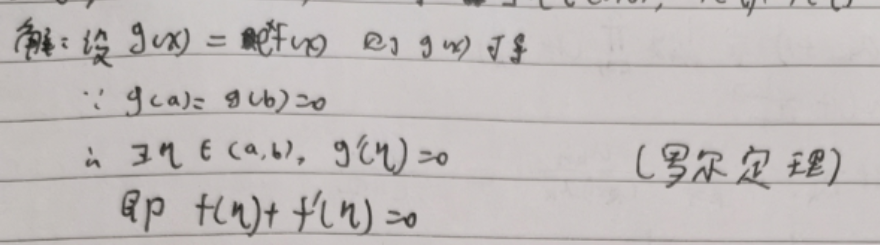 解：设 g(x) = eˣf(x) 则 g(x) 可导
∵ g(a) = g(b) = 0
∴ ∃η ∈ (a,b), g'(η) = 0 (罗尔定理)
即 f(η) + f'(η) = 0